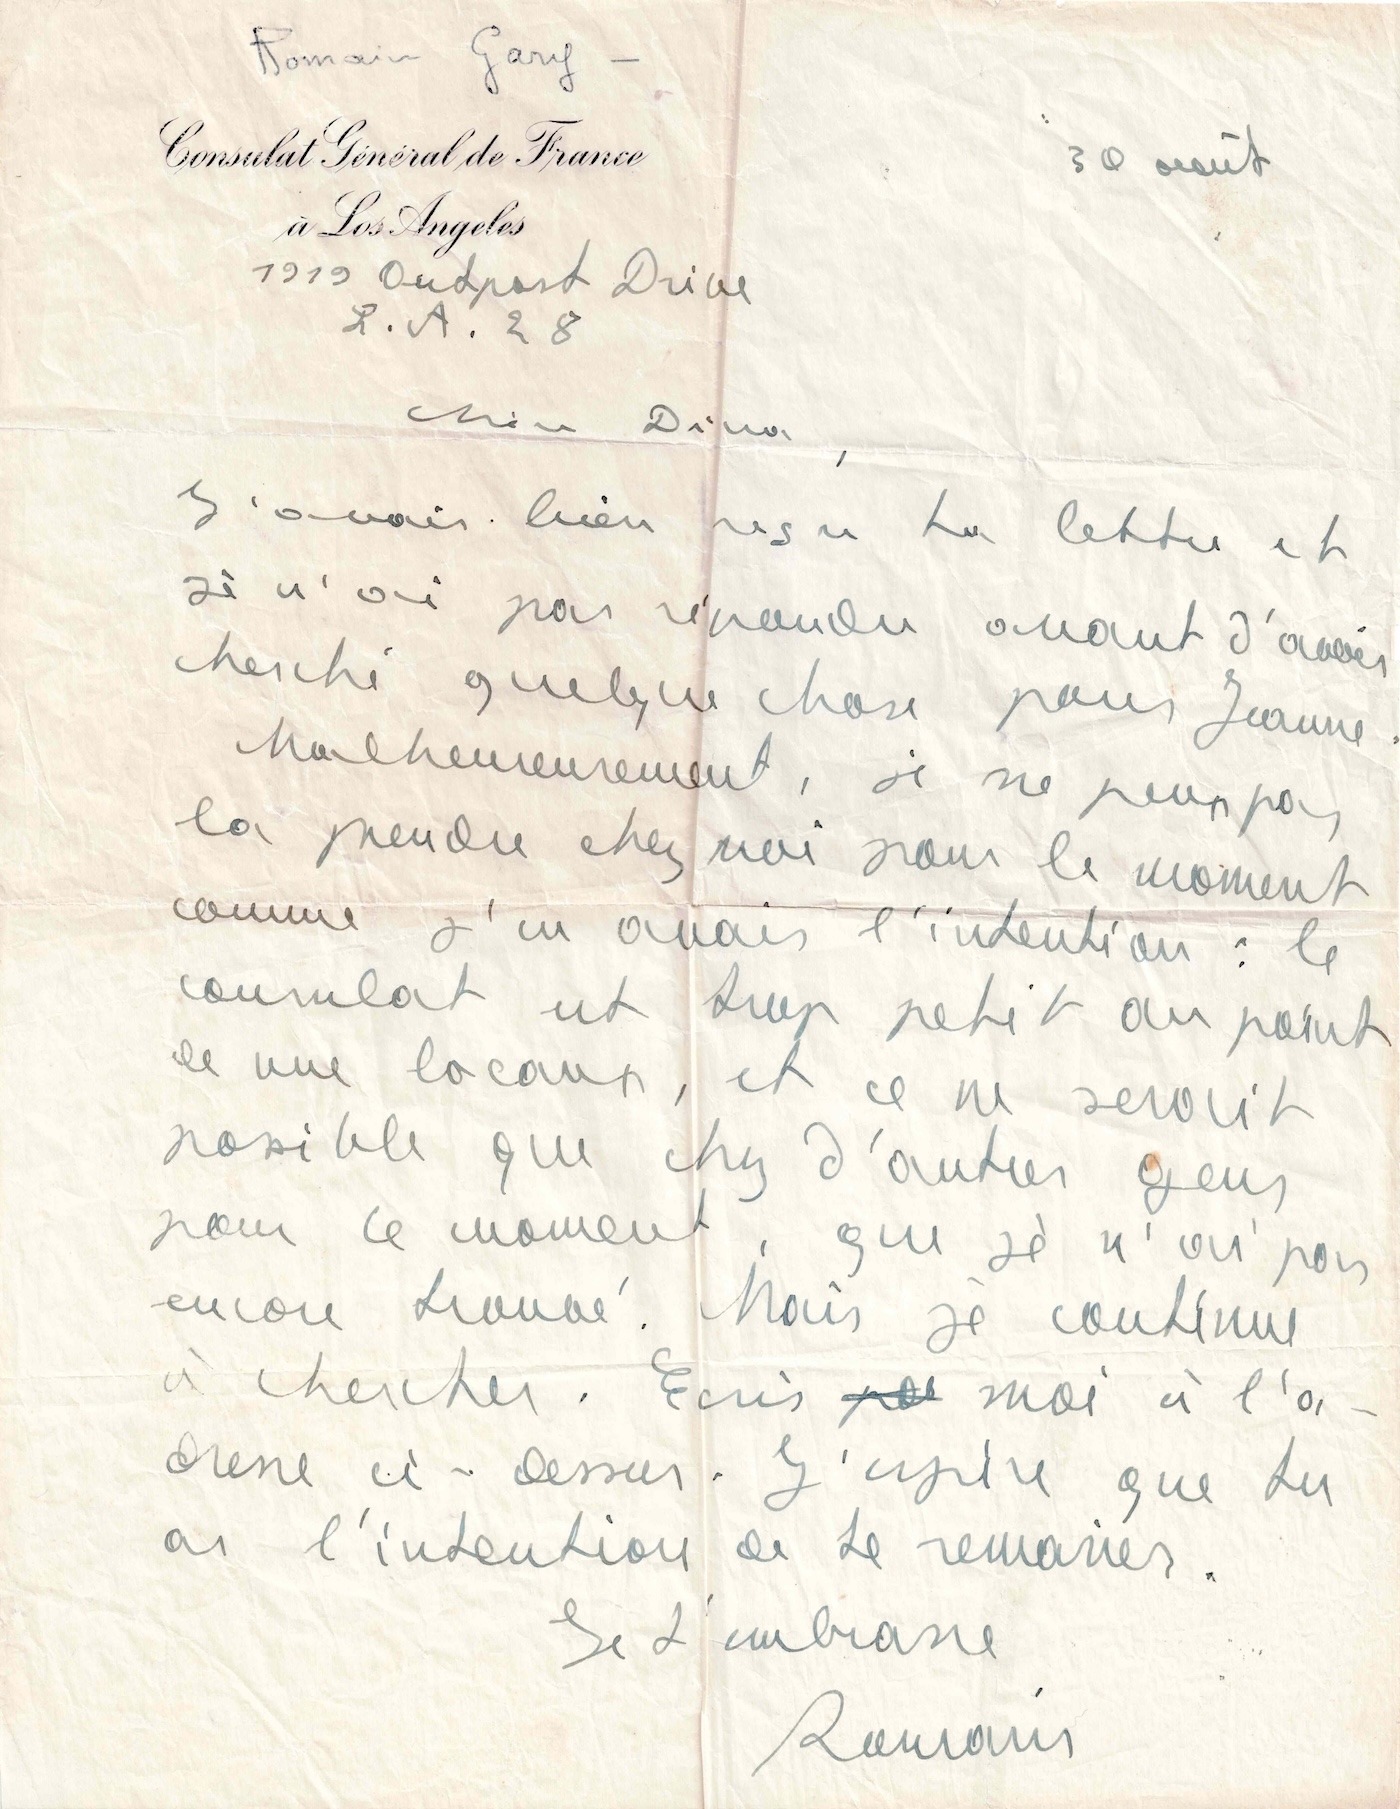 Romain Gary -
Consulat Général de France
à Los Angeles
30 août
1919 Outpost Drive
L.A. 28
Chère Dina,
J'avais bien reçu ta lettre et
je n'ai pas répondu avant d'avoir
cherché quelque chose pour Jeanne.
Malheureusement, je ne peux pas
la prendre chez moi pour le moment
comme j'en avais l'intention : le
consulat est trop petit au point
de vue locaux, et ce ne serait
possible que chez d'autres gens
pour le moment, que je n'ai pas
encore trouvé. Mais je continue
à chercher. Ecris moi à l'a-
dresse ci-dessus. J'espère que tu
as l'intention de te remarier.
Je t'embrasse
Romain